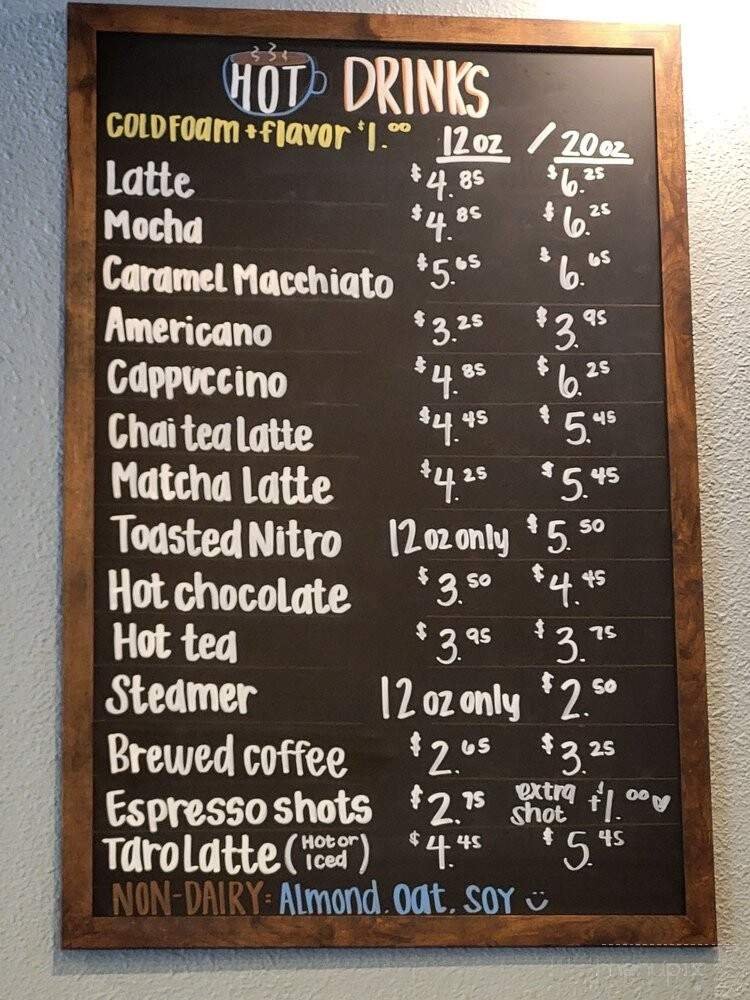 HOT DRINKS
COLD FOAM + flavor $1.00 12oz / 20oz
Latte $4.85 $6.25
Mocha $4.85 $6.25
Caramel Macchiato $5.65 $6.65
Americano $3.25 $3.95
Cappuccino $4.85 $6.25
Chai tea Latte $4.45 $5.45
Matcha Latte $4.25 $5.45
Toasted Nitro 12 oz only $5.50
Hot chocolate $3.50 $4.45
Hot tea $3.95 $3.75
Steamer 12 oz only $2.50
Brewed coffee $2.65 $3.25
Espresso shots $2.75 extra shot +$1.00
Taro Latte (Hot or Iced) $4.45 $5.45
NON-DAIRY: Almond. Oat. SOY
menupix